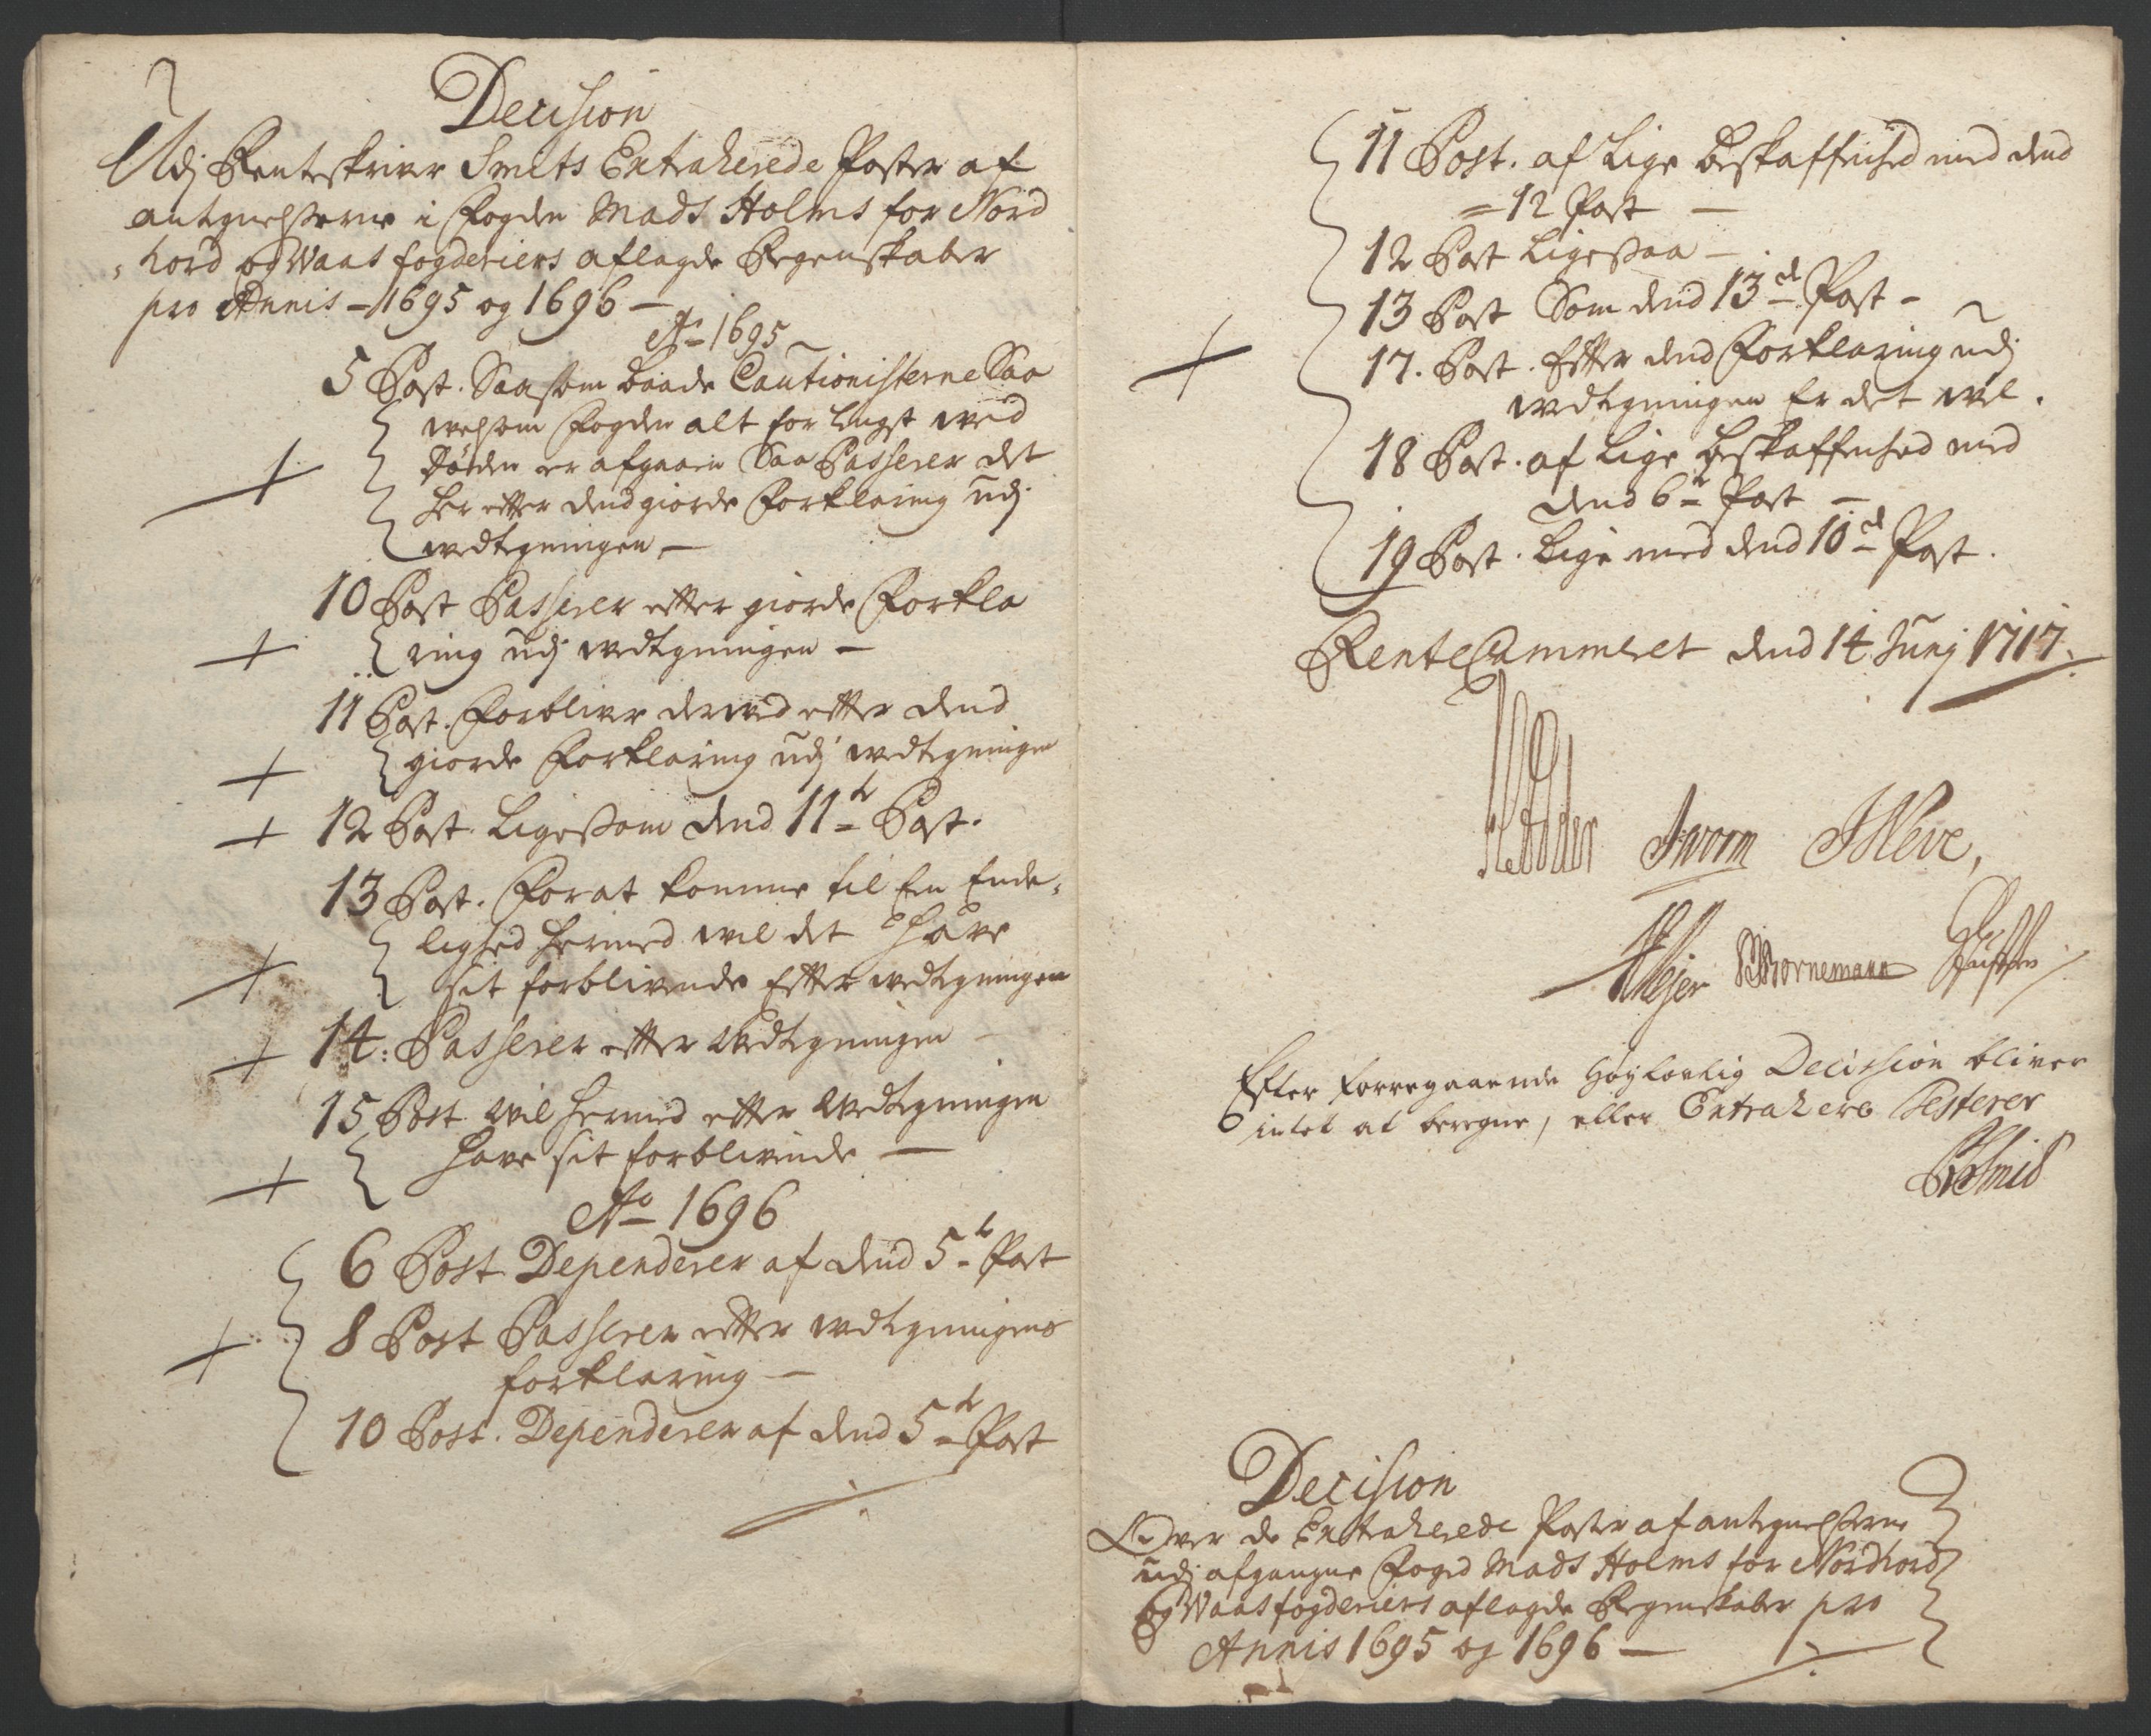 Decision
Udj Renteskriver Smits Extraherede Poster af
antegnelserne i Fogden Mads Holms for Nord
hord og Waas fogderiers aflagde Regenskaber
pro Annis 1695 og 1696 –
Ao 1695
5 Post. Saasom baade Cautionisterne Saa
welsom Fogden alt for lengst wed
Døden er afgaaen Saa Passerer det
her efter dend giorde Forklaring udj
wedtegningen –
10 Post Passerer efter giorde Forkla
ring udj wedtegningen –
11 Post. Forblive derwed efter dend
giorde Forklaring udj wedtegningen
12 Post. Ligessom dend 11te Post.
13 Post. For at komme til En Ende-
lighed hermed wil det have
sit forblivende Efter wedtegningen
14: Passerer efter Wedtegningen –
15 Post wil hermed efter Wedtegningen
have sit forblivende –
Ao 1696
6 Post Dependerer af dend 5te Post
8 Post Passerer efter wedtegningens
forklaring –
10 Post. Dependerer af dend 5te Post
11 Post. af Lige beskaffenhed med dend
12 Post –
12 Post Ligessaa –
13 Post Som dend 13de Post –
17. Post. Efter dend Forklaring udj
wedtegningen Er det wel.
18 Post. af Lige beskaffenhed med
dend 6te Post –
19 Post. Lige med dend 10de Post.
RenteCammeret dend 14 Junj 1717.
JWorm
Meyer Bornemann
Efter forregaaende høylovlig Decission bliver
intet at beregne, eller Extrahere Resterer
Smid
Decision
Over de Extraherede Poster af antegnelserne
udj afgangne Foged Mads Holms for Nordhord
og Waas fogderiers aflagde Regenskaber pro
Annis 1695 og 1696 –